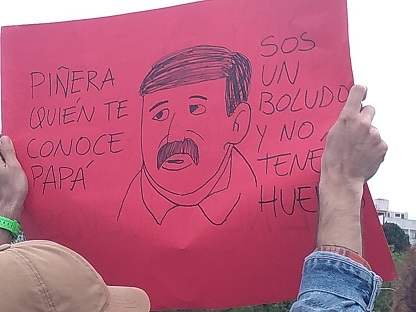 PIÑERA
QUIÉN TE
CONOCE
PAPÁ
SOS
UN
BOLUDO
Y NO
TENE
HUE